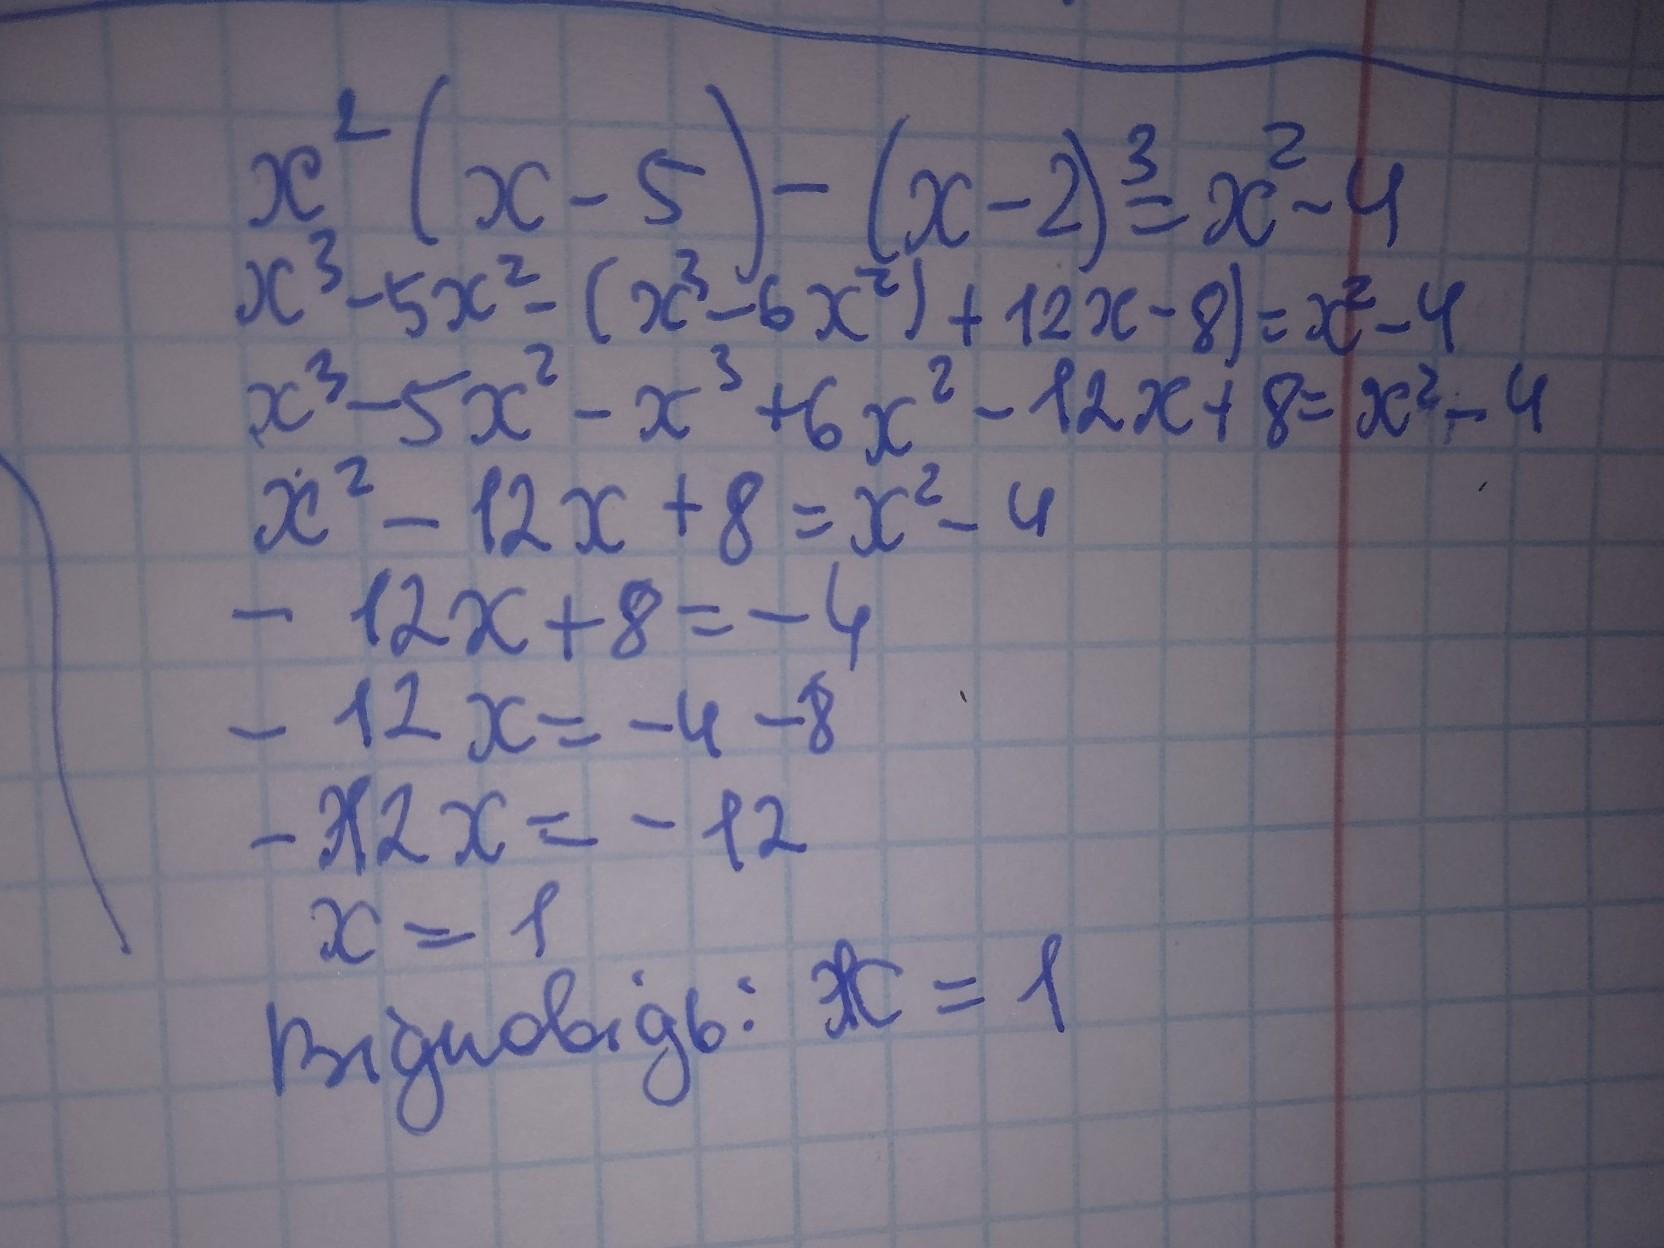 x²(x-5)-(x-2)³=x²-4
x³-5x²-(x³-6x²)+12x-8)=x²-4
x³-5x²-x³+6x²-12x+8=x²-4
x²-12x+8=x²-4
-12x+8=-4
-12x=-4-8
-12x=-12
x=1
Відповідь: x=1